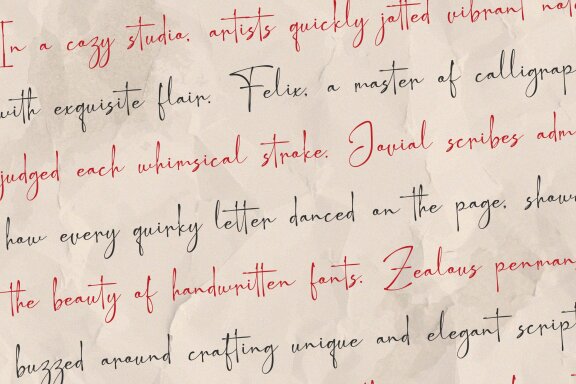 In a cozy studio, artists quickly jotted vibrant
with exquisite flair. Felix, a master of calligrap
judged each whimsical stroke. Jovial scribes adm
how every quirky letter danced on the page, show
the beauty of handwritten fonts. Zealous penman
buzzed around crafting unique and elegant script